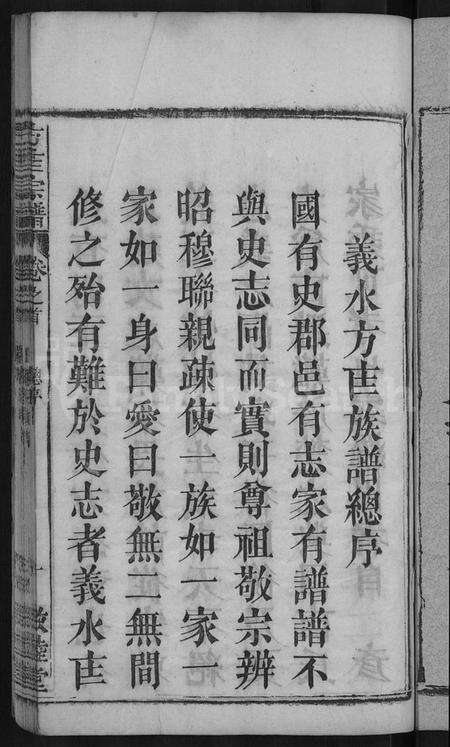 義水方世族譜總序
國有史郡邑有志家有譜譜不
與史志同而實則尊祖敬宗辨
昭穆聯親疎使一族如一家一
家如一身曰愛曰敬無二無間
修之殆有難於史志者義水世
方世宗譜 卷之首 總序 一 敦睦堂